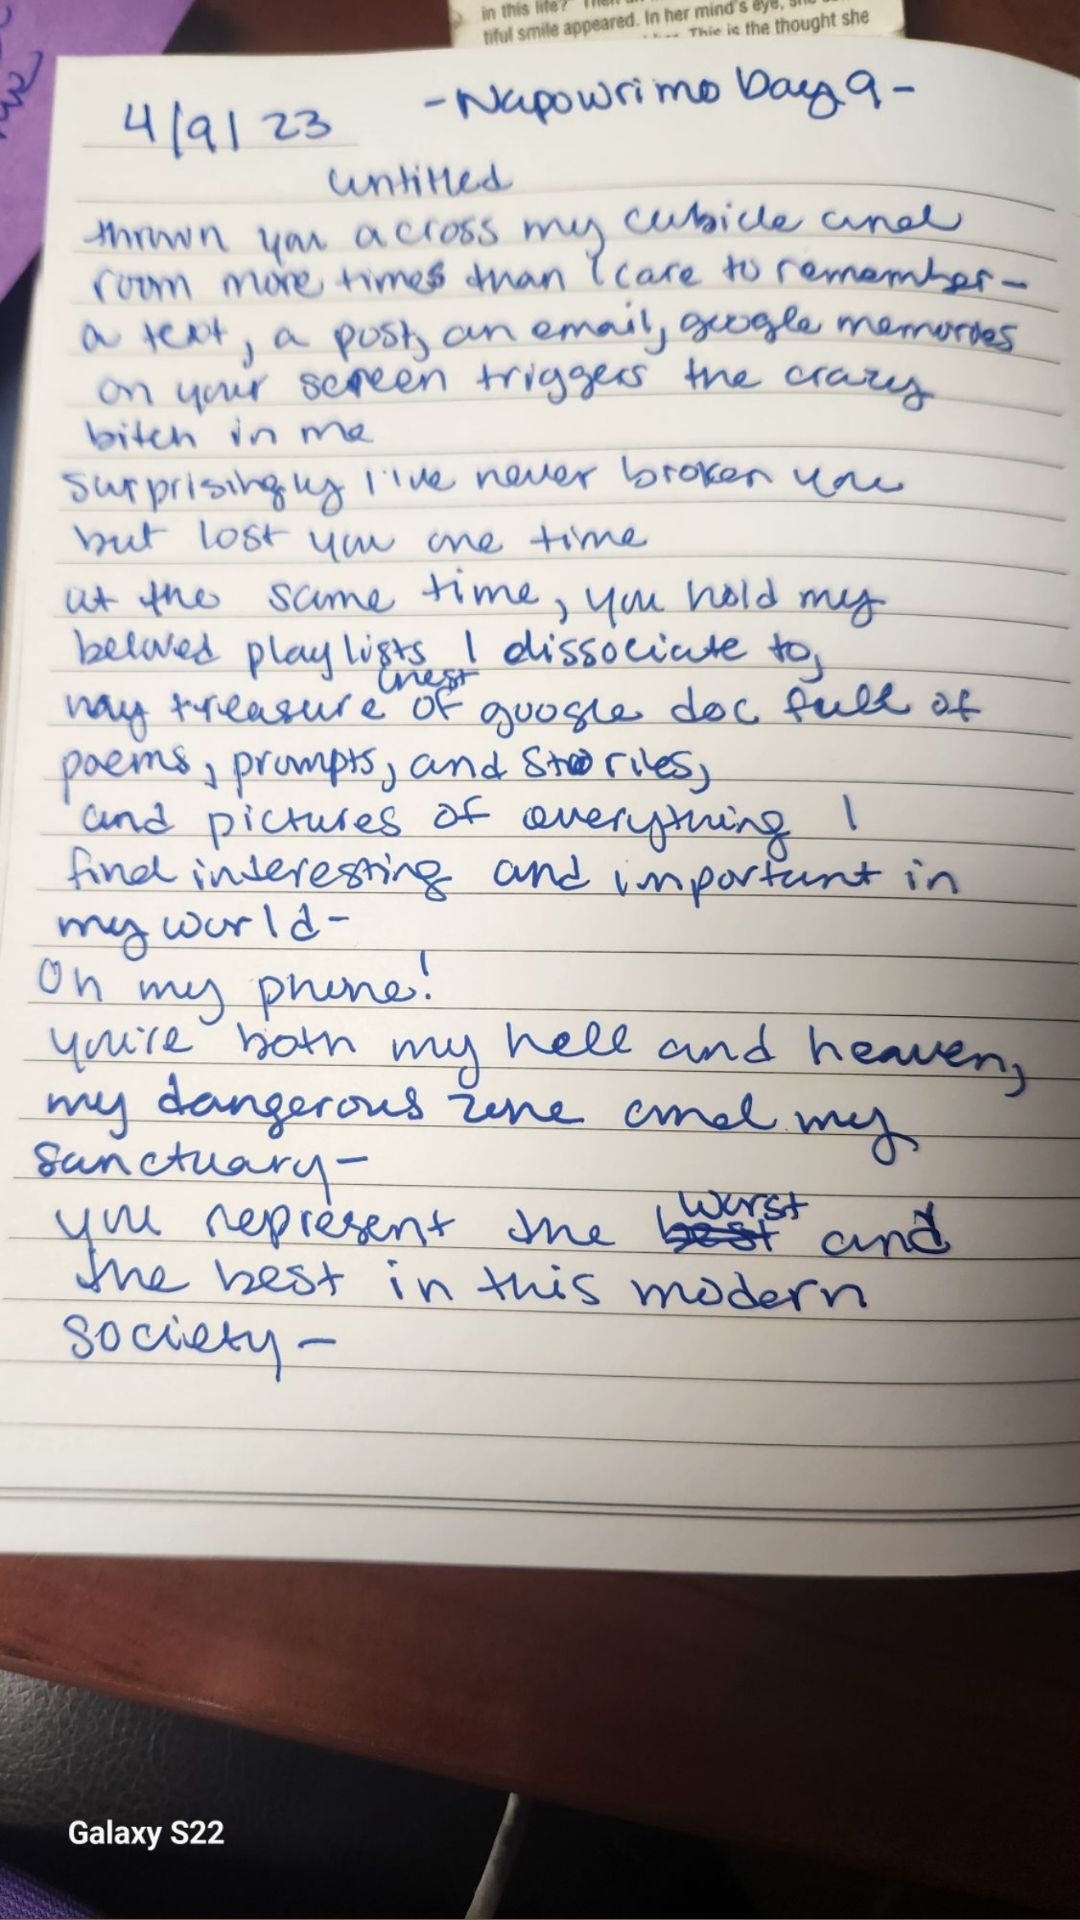 in this life?
tiful smile appeared. In her mind's eye,
This is the thought she
4/9/23
-Napowrimo Day 9-
untitled
thrown you across my cubicle and
room more times than I care to remember-
a text, a post, an email, google memories
on your screen triggers the crazy
bitch in me
surprisingly I've never broken you
but lost you one time
at the same time, you hold my
beloved playlists I dissociate to,
my treasure chest of google doc full of
poems, prompts, and stories,
and pictures of everything I
find interesting and important in
my world-
Oh my phone!
you're both my hell and heaven,
my dangerous zone and my
sanctuary-
you represent the best worst and
the best in this modern
society-
Galaxy S22